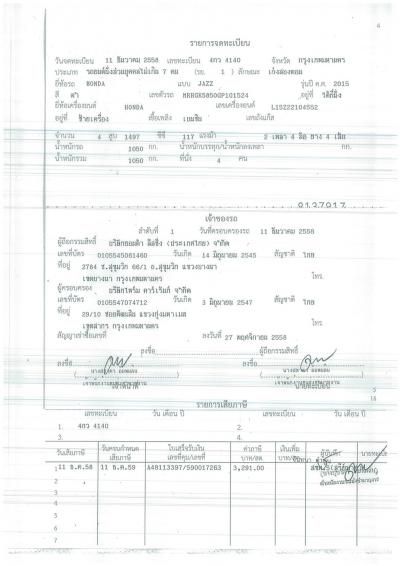 4
รายการจดทะเบียน
วันจดทะเบียน 11 ธันวาคม 2558 เลขทะเบียน 4กว 4140 จังหวัด กรุงเทพมหานคร
ประเภท รถยนต์นั่งส่วนบุคคลไม่เกิน 7 คน (รย. 1 ) ลักษณะ เก๋งสองตอน
ยี่ห้อรถ HONDA แบบ JAZZ รุ่นปี ค.ศ. 2015
สี ดำ เลขตัวรถ MRHGK5850GP101524 อยู่ที่
ยี่ห้อเครื่องยนต์ HONDA เลขเครื่องยนต์ L15Z22104552
อยู่ที่ ซ้ายเครื่อง เชื้อเพลิง เบนซิน เลขถังแก๊ส
จำนวน 4 สูบ 1497 ซีซี 117 แรงม้า 2 เพลา 4 ล้อ ยาง 4 เส้น
น้ำหนักรถ 1050 กก. น้ำหนักบรรทุก/น้ำหนักลงเพลา กก.
น้ำหนักรวม 1050 กก. ที่นั่ง 4 คน
เจ้าของรถ
ลำดับที่ 1 วันที่ครอบครองรถ 11 ธันวาคม 2558
ผู้ถือกรรมสิทธิ์ ลีสซิ่ง (ประเทศไทย) จำกัด
เลขที่บัตร 0105545081460 วันเกิด 14 มิถุนายน 2545 สัญชาติ ไทย
ที่อยู่ 2784 ซ.สุขุมวิท 66/1 ถ.สุขุมวิท แขวงบางนา
เขตบางนา กรุงเทพมหานคร โทร.
ผู้ครอบครอง
เลขที่บัตร 0105547074712 วันเกิด 3 มิถุนายน 2547 สัญชาติ ไทย
ที่อยู่ 29/10 แขวงทุ่งมหาเมฆ
เขตสาทร กรุงเทพมหานคร โทร.
สัญญาเช่าซื้อเลขที่ ลงวันที่ 27 พฤศจิกายน 2558
ลงชื่อ ผู้ถือกรรมสิทธิ์
ลงชื่อ ลงชื่อ
เจ้าหน้าที่ นายทะเบียน
5
16
รายการเสียภาษี
เลขทะเบียน วัน เดือน ปี เลขทะเบียน วัน เดือน ปี
1. 4กว 4140 2.
3. 4.
วันเสียภาษี วันครบกำหนดเสียภาษี ใบเสร็จรับเงิน เลขที่คุม/เลขที่ ค่าภาษี บาท/สต. เงินเพิ่ม บาท/สต. ผู้บันทึก นายทะเบียน
1 11 ธ.ค.58 11 ธ.ค.59 A48113397/590017263 3,291.00
2
3
4
5
6
7